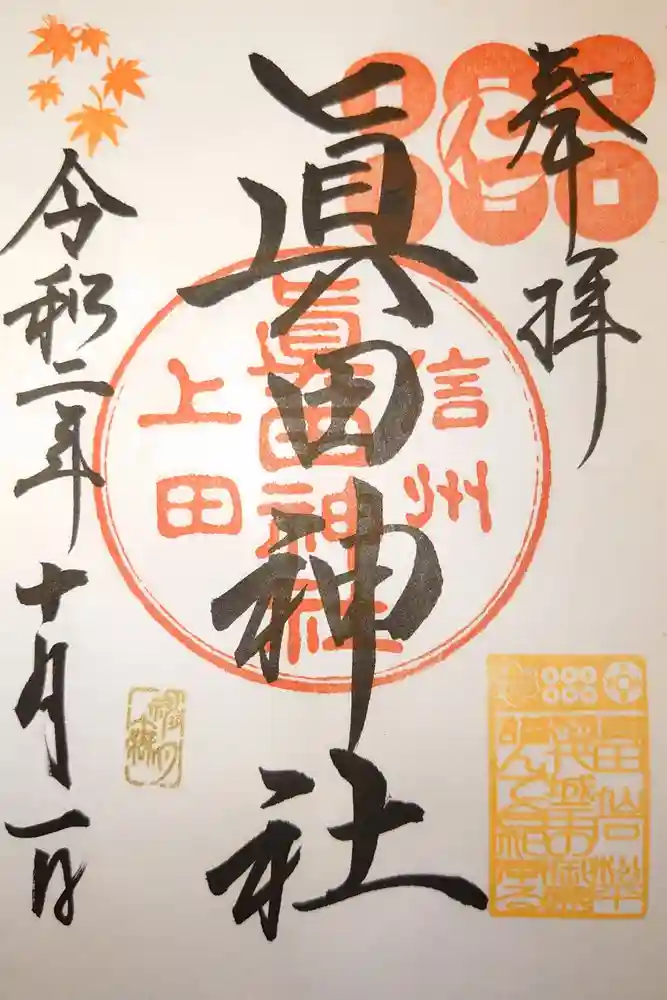 奉拝
仁
信州
眞田神社
上田
眞田神社
令和二年十月一日